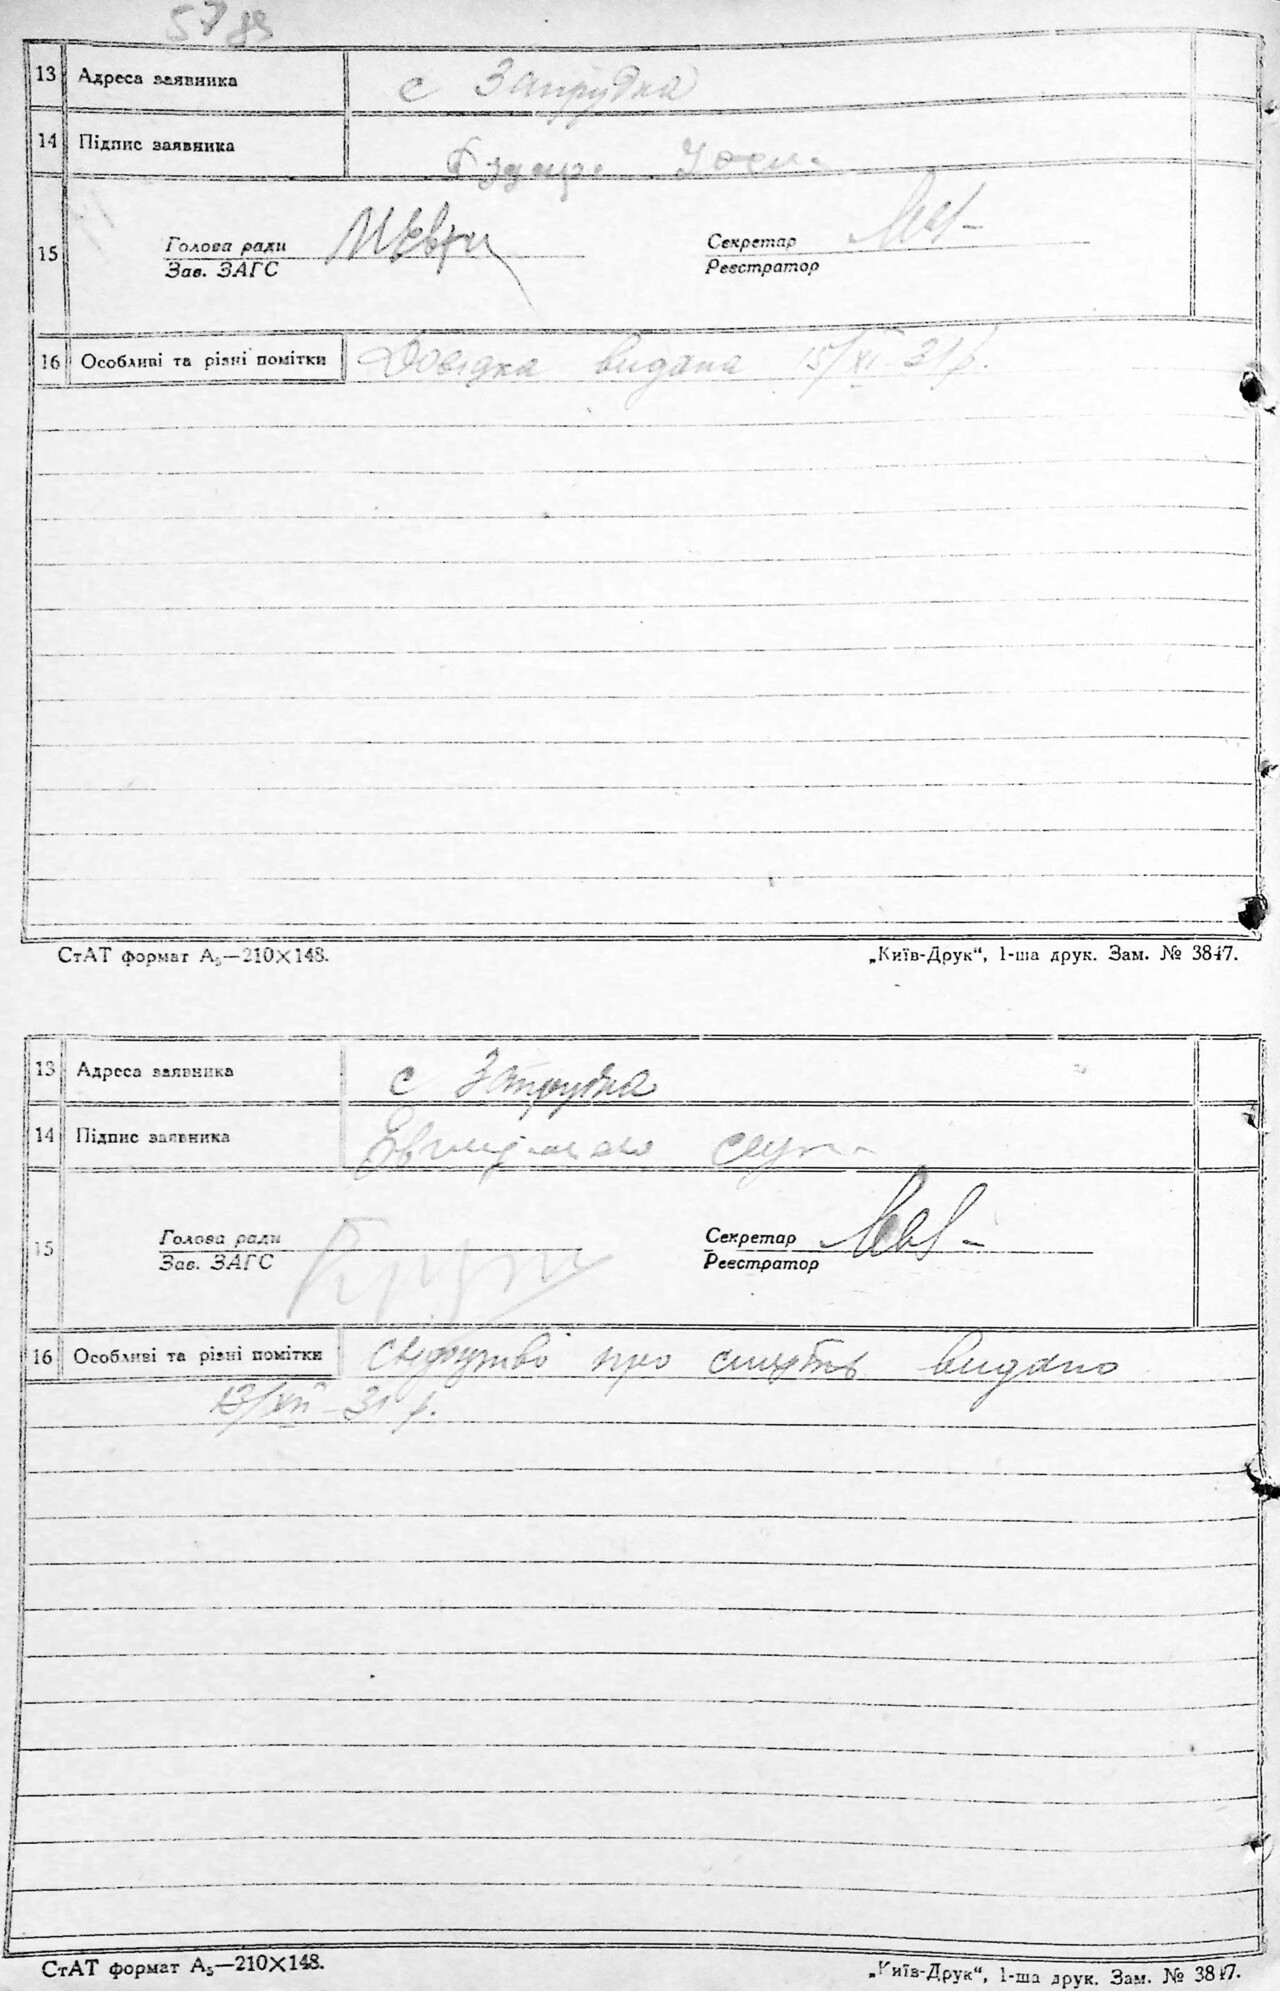 57 83
13 Адреса заявника с Запрудка
14 Підпис заявника
15 Голова ради Секретар
Зав. ЗАГС Реєстратор
16 Особливі та різні помітки Довідка видана 15/XI 31 р.
СтАТ формат А₅—210×148. „Київ-Друк“, 1-ша друк. Зам. № 3847.
13 Адреса заявника с Запрудка
14 Підпис заявника
15 Голова ради Секретар
Зав. ЗАГС Реєстратор
16 Особливі та різні помітки свідоцтво про смерть видано
13/XII 31 р.
СтАТ формат А₅—210×148. „Київ-Друк“, 1-ша друк. Зам. № 3847.